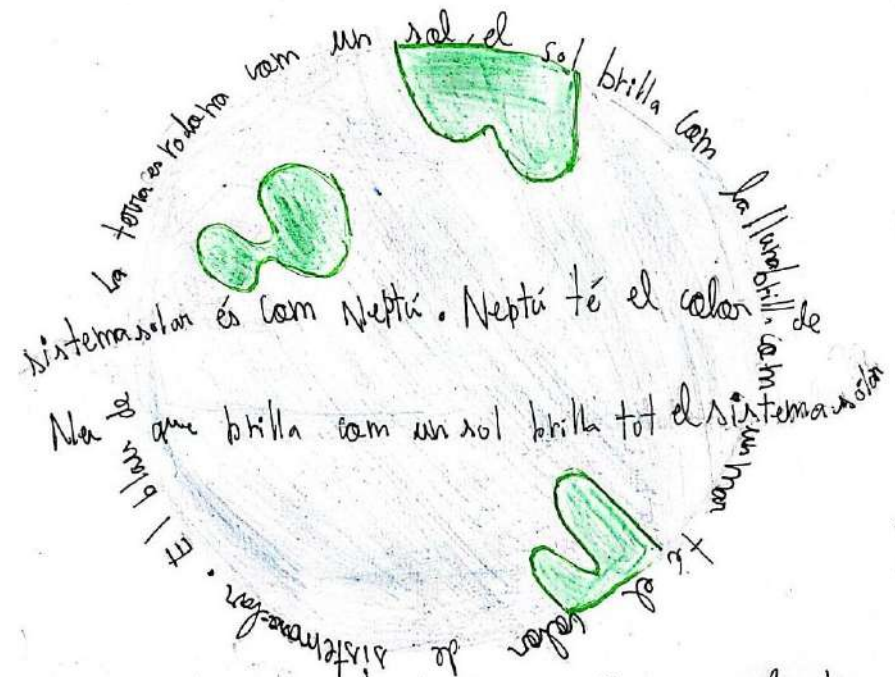 La terra es rodona com un sol, el sol brilla com la lluna brilla com un mar té el color de sistema solar. El blau de
sistema solar és com Neptú. Neptú té el color de
que brilla com un sol brilla tot el sistema solar